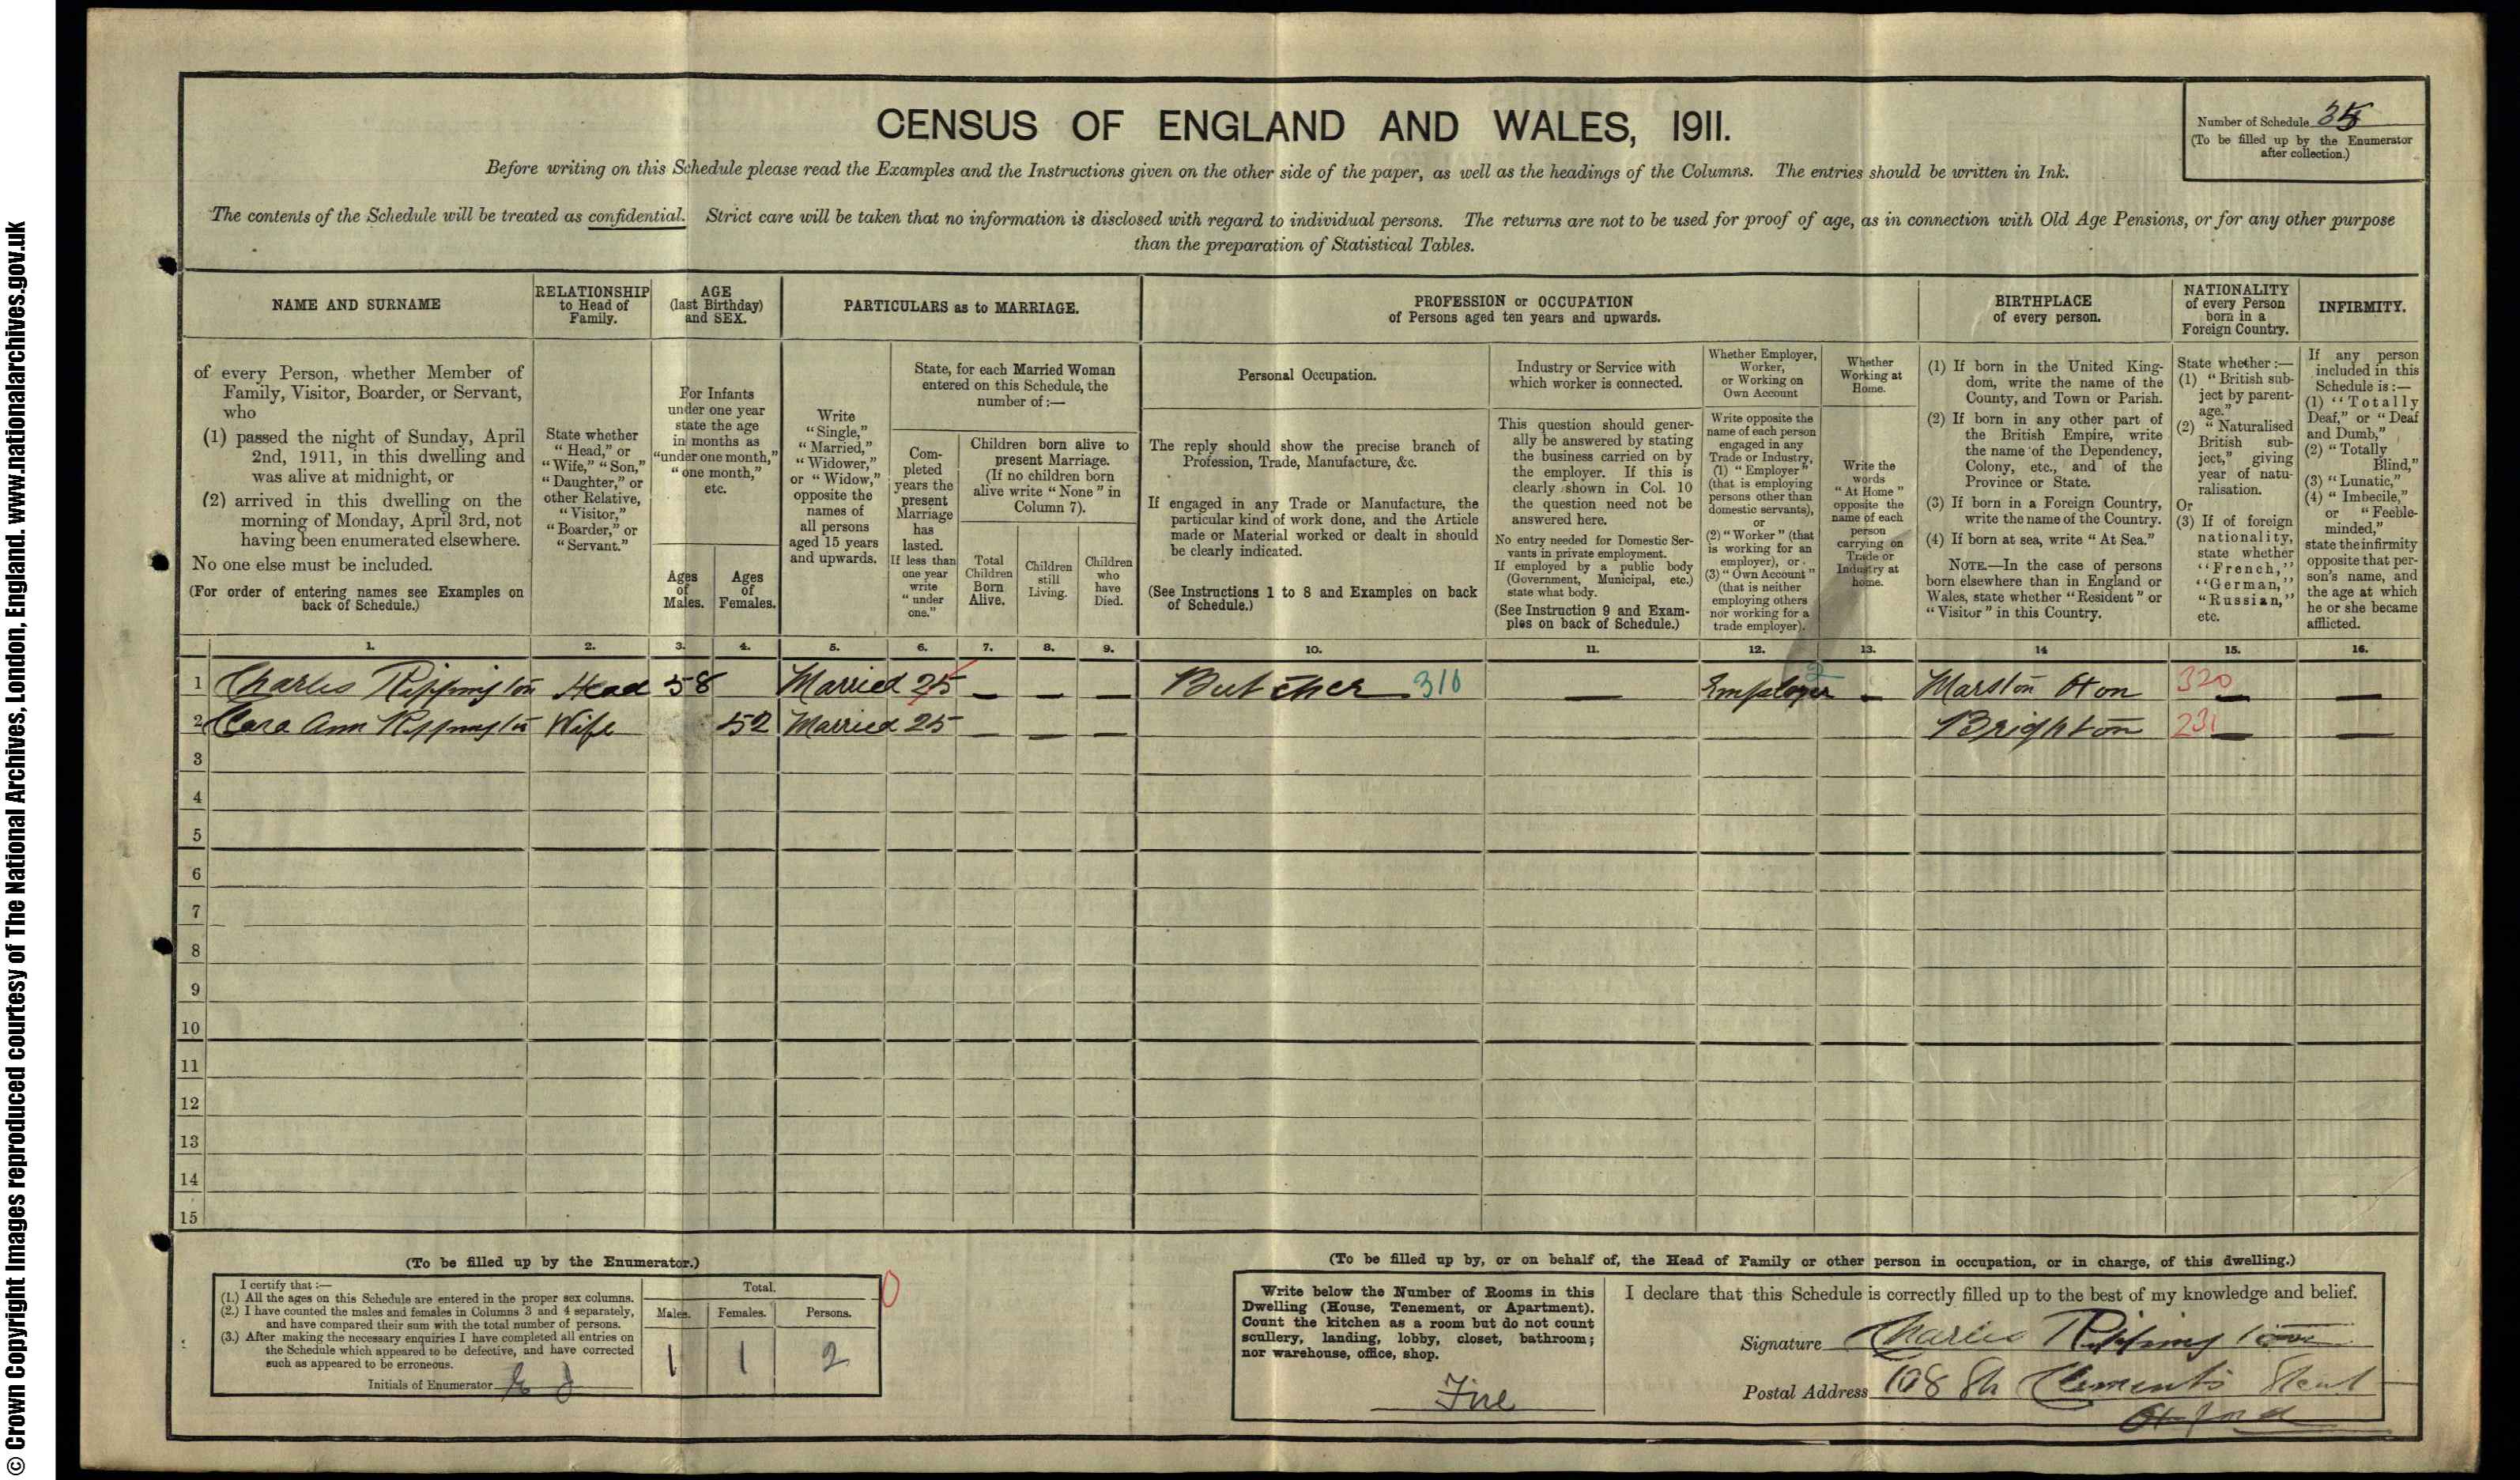 © Crown Copyright Images reproduced courtesy of The National Archives, London, England. www.nationalarchives.gov.uk
CENSUS OF ENGLAND AND WALES, 1911.
Number of Schedule 35
(To be filled up by the Enumerator
after collection.)
Before writing on this Schedule please read the Examples and the Instructions given on the other side of the paper, as well as the headings of the Columns. The entries should be written in Ink.
The contents of the Schedule will be treated as confidential. Strict care will be taken that no information is disclosed with regard to individual persons. The returns are not to be used for proof of age, as in connection with Old Age Pensions, or for any other purpose
than the preparation of Statistical Tables.
NAME AND SURNAME
of every Person, whether Member of
Family, Visitor, Boarder, or Servant,
who
(1) passed the night of Sunday, April
2nd, 1911, in this dwelling and
was alive at midnight, or
(2) arrived in this dwelling on the
morning of Monday, April 3rd, not
having been enumerated elsewhere.
No one else must be included.
(For order of entering names see Examples on
back of Schedule.)
RELATIONSHIP
to Head of
Family.
State whether
"Head," or
"Wife," "Son,"
"Daughter," or
other Relative,
"Visitor,"
"Boarder," or
"Servant."
AGE
(last Birthday)
and SEX.
For Infants
under one year
state the age
in months as
"under one month,"
"one month,"
etc.
Ages
of
Males.
Ages
of
Females.
PARTICULARS as to MARRIAGE.
Write
"Single,"
"Married,"
"Widower,"
or "Widow,"
opposite the
names of
all persons
aged 15 years
and upwards.
State, for each Married Woman
entered on this Schedule, the
number of:—
Com-
pleted
years the
present
Marriage
has
lasted.
If less than
one year
write
"under
one."
Children born alive to
present Marriage.
(If no children born
alive write "None" in
Column 7).
Total
Children
Born
Alive.
Children
still
Living.
Children
who
have
Died.
PROFESSION or OCCUPATION
of Persons aged ten years and upwards.
Personal Occupation.
The reply should show the precise branch of
Profession, Trade, Manufacture, &c.
If engaged in any Trade or Manufacture, the
particular kind of work done, and the Article
made or Material worked or dealt in should
be clearly indicated.
(See Instructions 1 to 8 and Examples on back
of Schedule.)
Industry or Service with
which worker is connected.
This question should gener-
ally be answered by stating
the business carried on by
the employer. If this is
clearly shown in Col. 10
the question need not be
answered here.
No entry needed for Domestic Ser-
vants in private employment.
If employed by a public body
(Government, Municipal, etc.)
state what body.
(See Instruction 9 and Exam-
ples on back of Schedule.)
Whether Employer,
Worker,
or Working on
Own Account
Write opposite the
name of each person
engaged in any
Trade or Industry,
(1) "Employer"
(that is employing
persons other than
domestic servants),
or
(2) "Worker" (that
is working for an
employer), or
(3) "Own Account"
(that is neither
employing others
nor working for a
trade employer).
Whether
Working at
Home.
Write the
words
"At Home"
opposite the
name of each
person
carrying on
Trade or
Industry at
home.
BIRTHPLACE
of every person.
(1) If born in the United King-
dom, write the name of the
County, and Town or Parish.
(2) If born in any other part of
the British Empire, write
the name of the Dependency,
Colony, etc., and of the
Province or State.
(3) If born in a Foreign Country,
write the name of the Country.
(4) If born at sea, write "At Sea."
NOTE.—In the case of persons
born elsewhere than in England or
Wales, state whether "Resident" or
"Visitor" in this Country.
NATIONALITY
of every Person
born in a
Foreign Country.
State whether:—
(1) "British sub-
ject by parent-
age."
(2) "Naturalised
British sub-
ject," giving
year of natu-
ralisation.
Or
(3) If of foreign
nationality,
state whether
"French,"
"German,"
"Russian,"
etc.
INFIRMITY.
If any person
included in this
Schedule is:—
(1) "Totally
Deaf," or "Deaf
and Dumb,"
(2) "Totally
Blind,"
(3) "Lunatic,"
(4) "Imbecile,"
or "Feeble-
minded,"
state the infirmity
opposite that per-
son's name, and
the age at which
he or she became
afflicted.
1. 2. 3. 4. 5. 6. 7. 8. 9. 10. 11. 12. 13. 14 15. 16.
1 Charles Rippington Head 58 Married 25 — — — Butcher 310 — Employer 2 — Marston Oxon 320 — —
2 Cara Ann Rippington Wife 52 Married 25 — — — Brighton 231 — —
3
4
5
6
7
8
9
10
11
12
13
14
15
(To be filled up by the Enumerator.)
I certify that:—
(1.) All the ages on this Schedule are entered in the proper sex columns.
(2.) I have counted the males and females in Columns 3 and 4 separately,
and have compared their sum with the total number of persons.
(3.) After making the necessary enquiries I have completed all entries on
the Schedule which appeared to be defective, and have corrected
such as appeared to be erroneous.
Initials of Enumerator
Total.
Males. Females. Persons.
1 1 2
0
(To be filled up by, or on behalf of, the Head of Family or other person in occupation, or in charge, of this dwelling.)
Write below the Number of Rooms in this
Dwelling (House, Tenement, or Apartment).
Count the kitchen as a room but do not count
scullery, landing, lobby, closet, bathroom;
nor warehouse, office, shop.
Five
I declare that this Schedule is correctly filled up to the best of my knowledge and belief.
Signature Charles Rippington
Postal Address 108 St Clements Street
Oxford